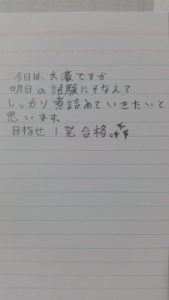 今日は、大凜ですが
明日の試験にそなえて
しっかり煮詰めていきたいと
思います。
目指せ1発合格